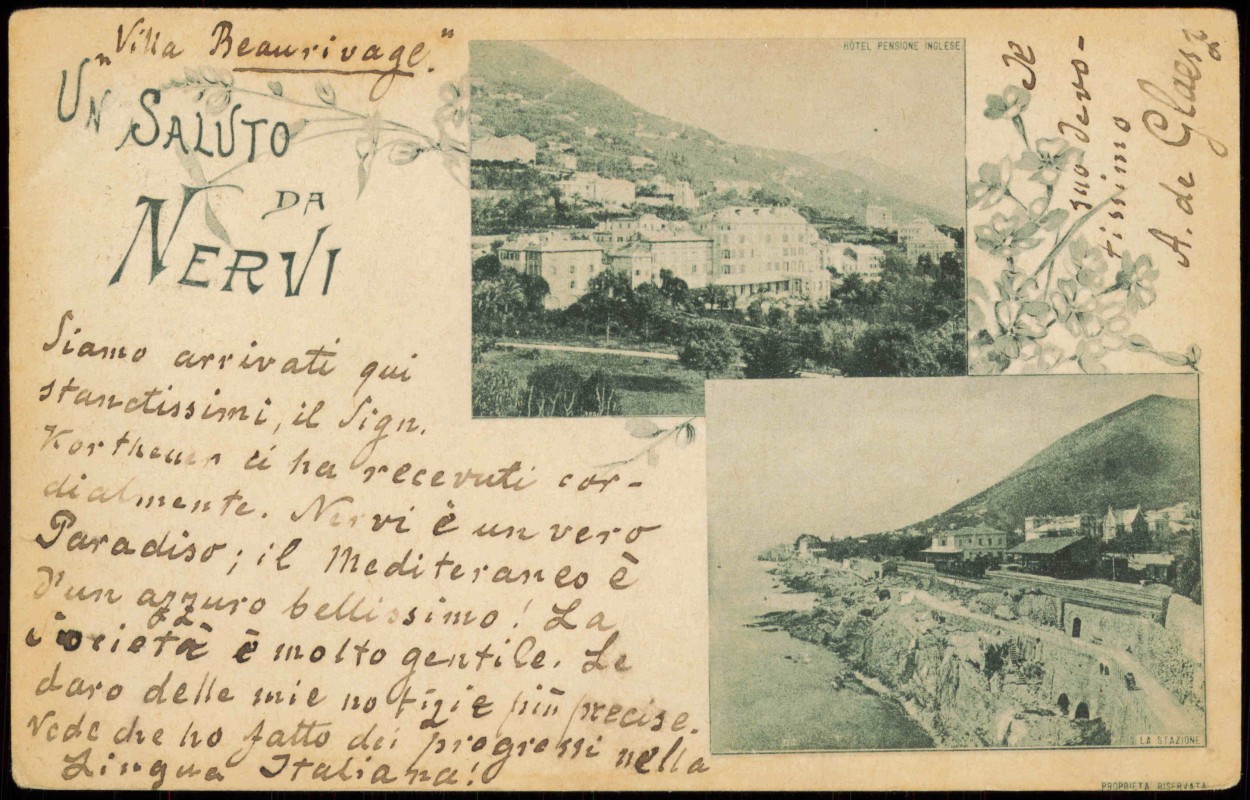 "Villa Beaurivage."
UN SALUTO
DA
NERVI
HÔTEL PENSIONE INGLESE
Siamo arrivati qui
stanctissimi, il Sign.
Kortheuer ci ha recevuti cor-
dialmente. Nervi è un vero
Paradiso; il Mediteraneo è
d'un azzuro bellissimo! La
Società è molto gentile. Le
daro delle mie notizie più precise.
Vede che ho fatto dei progressi nella
Lingua Italiana!
suo devo-
tissimo
A. de Glaesz
LA STAZIONE
PROPRIETA RISERVATA